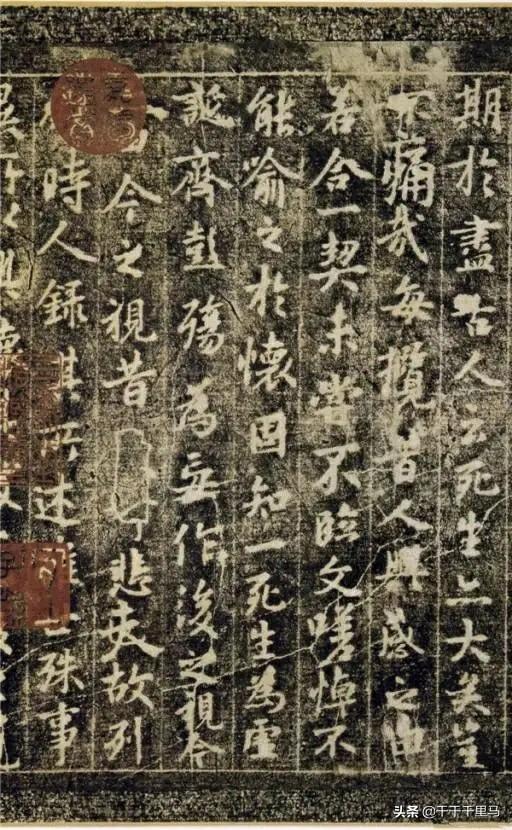 期於盡古人云死生亦大矣豈
不痛哉每攬昔人興感之由
若合一契未嘗不臨文嗟悼不
能喻之於懷固知一死生為虛
誕齊彭殤為妄作後之視今
今之視昔悲夫故列
時人錄其所述雖世殊事
異所以興懷
头条 @千千千里马